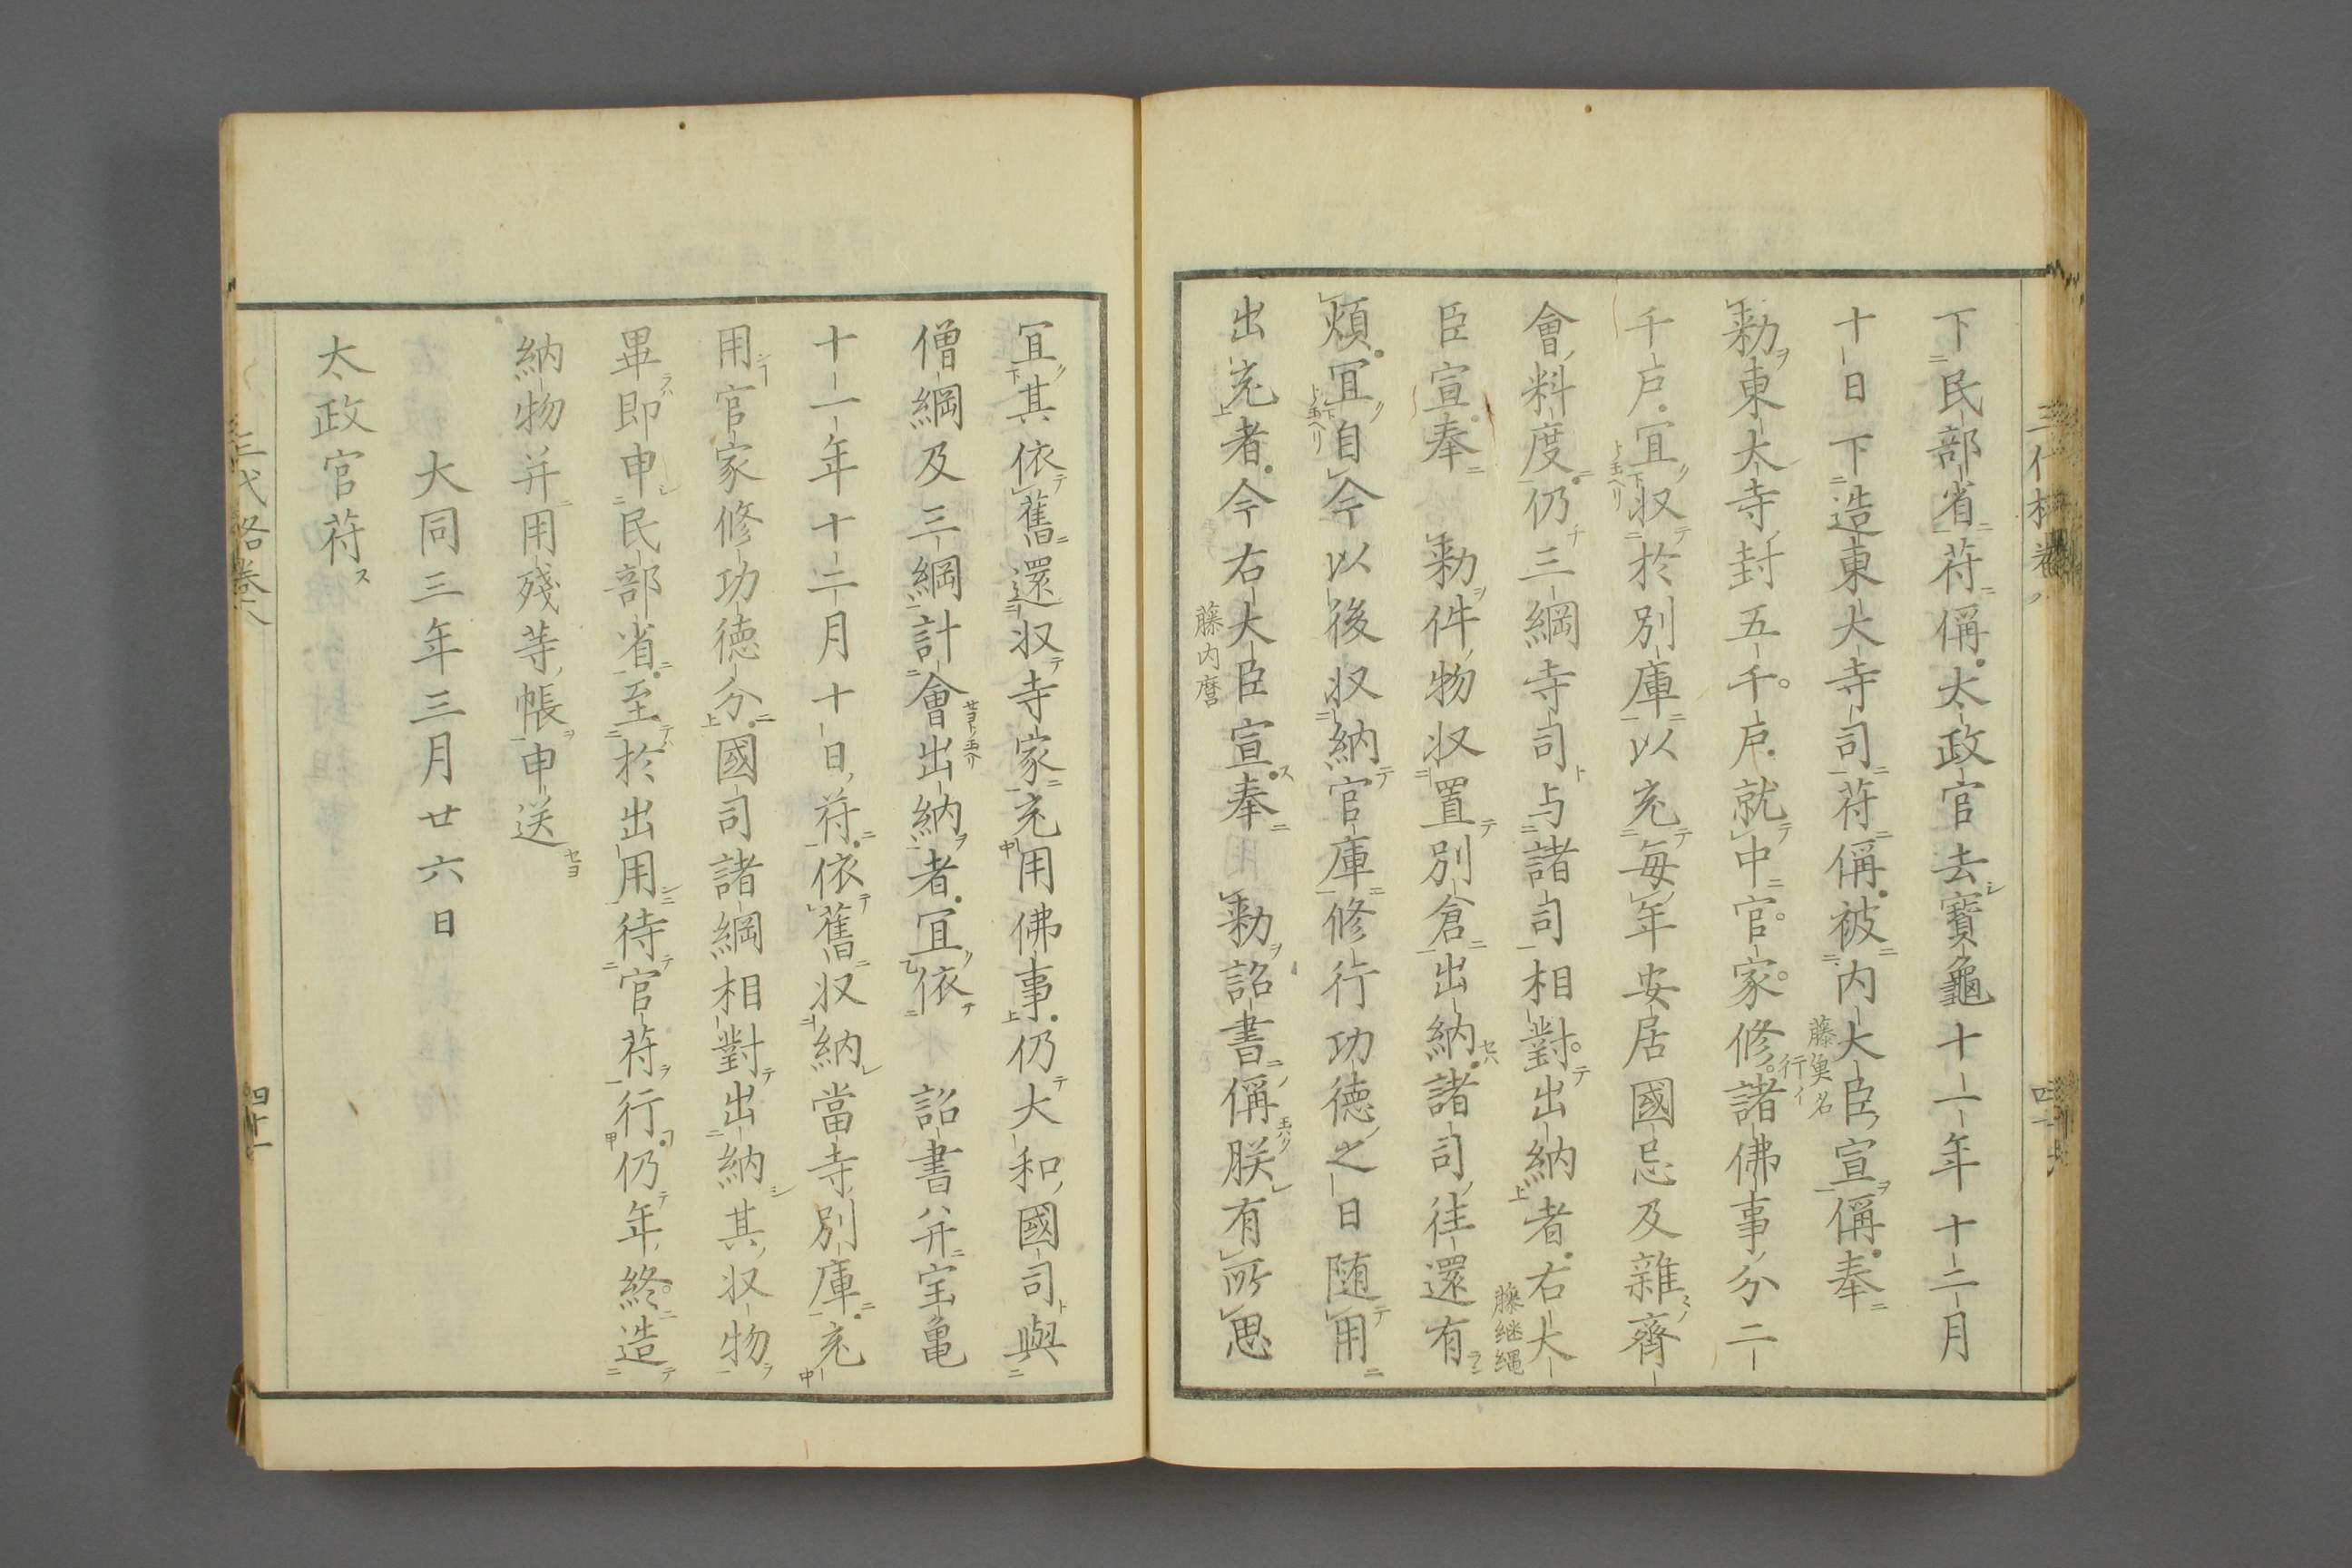 下民部省苻偁太政官去寳龜十一年十二月
十日下造東大寺司苻偁被内大臣宣偁奉
藤魚名
勅東大寺封五千戸就中官家修諸佛事分二
行イ
千戸冝収於別庫以充毎年安居國忌及雜齊
會料度仍三綱寺司与諸司相對出納者右大
藤継縄
臣宣奉 勅件物収置別倉出納諸司往還有
煩冝自今以後収納官庫修行功徳之日随用
出充者今右大臣宣奉 勅詔書偁朕有所思
藤内麿
冝其依舊還収寺家充用佛事仍大和國司與
僧綱及三綱計會出納者冝依 詔書并宝亀
十一年十二月十日苻依舊収納當寺別庫充
用官家修功徳分國司諸綱相對出納其収物
畢即申民部省至於出用待官苻行仍年終造
納物并用殘等帳申送
大同三年三月廿六日
太政官苻
三代格巻八
四十一